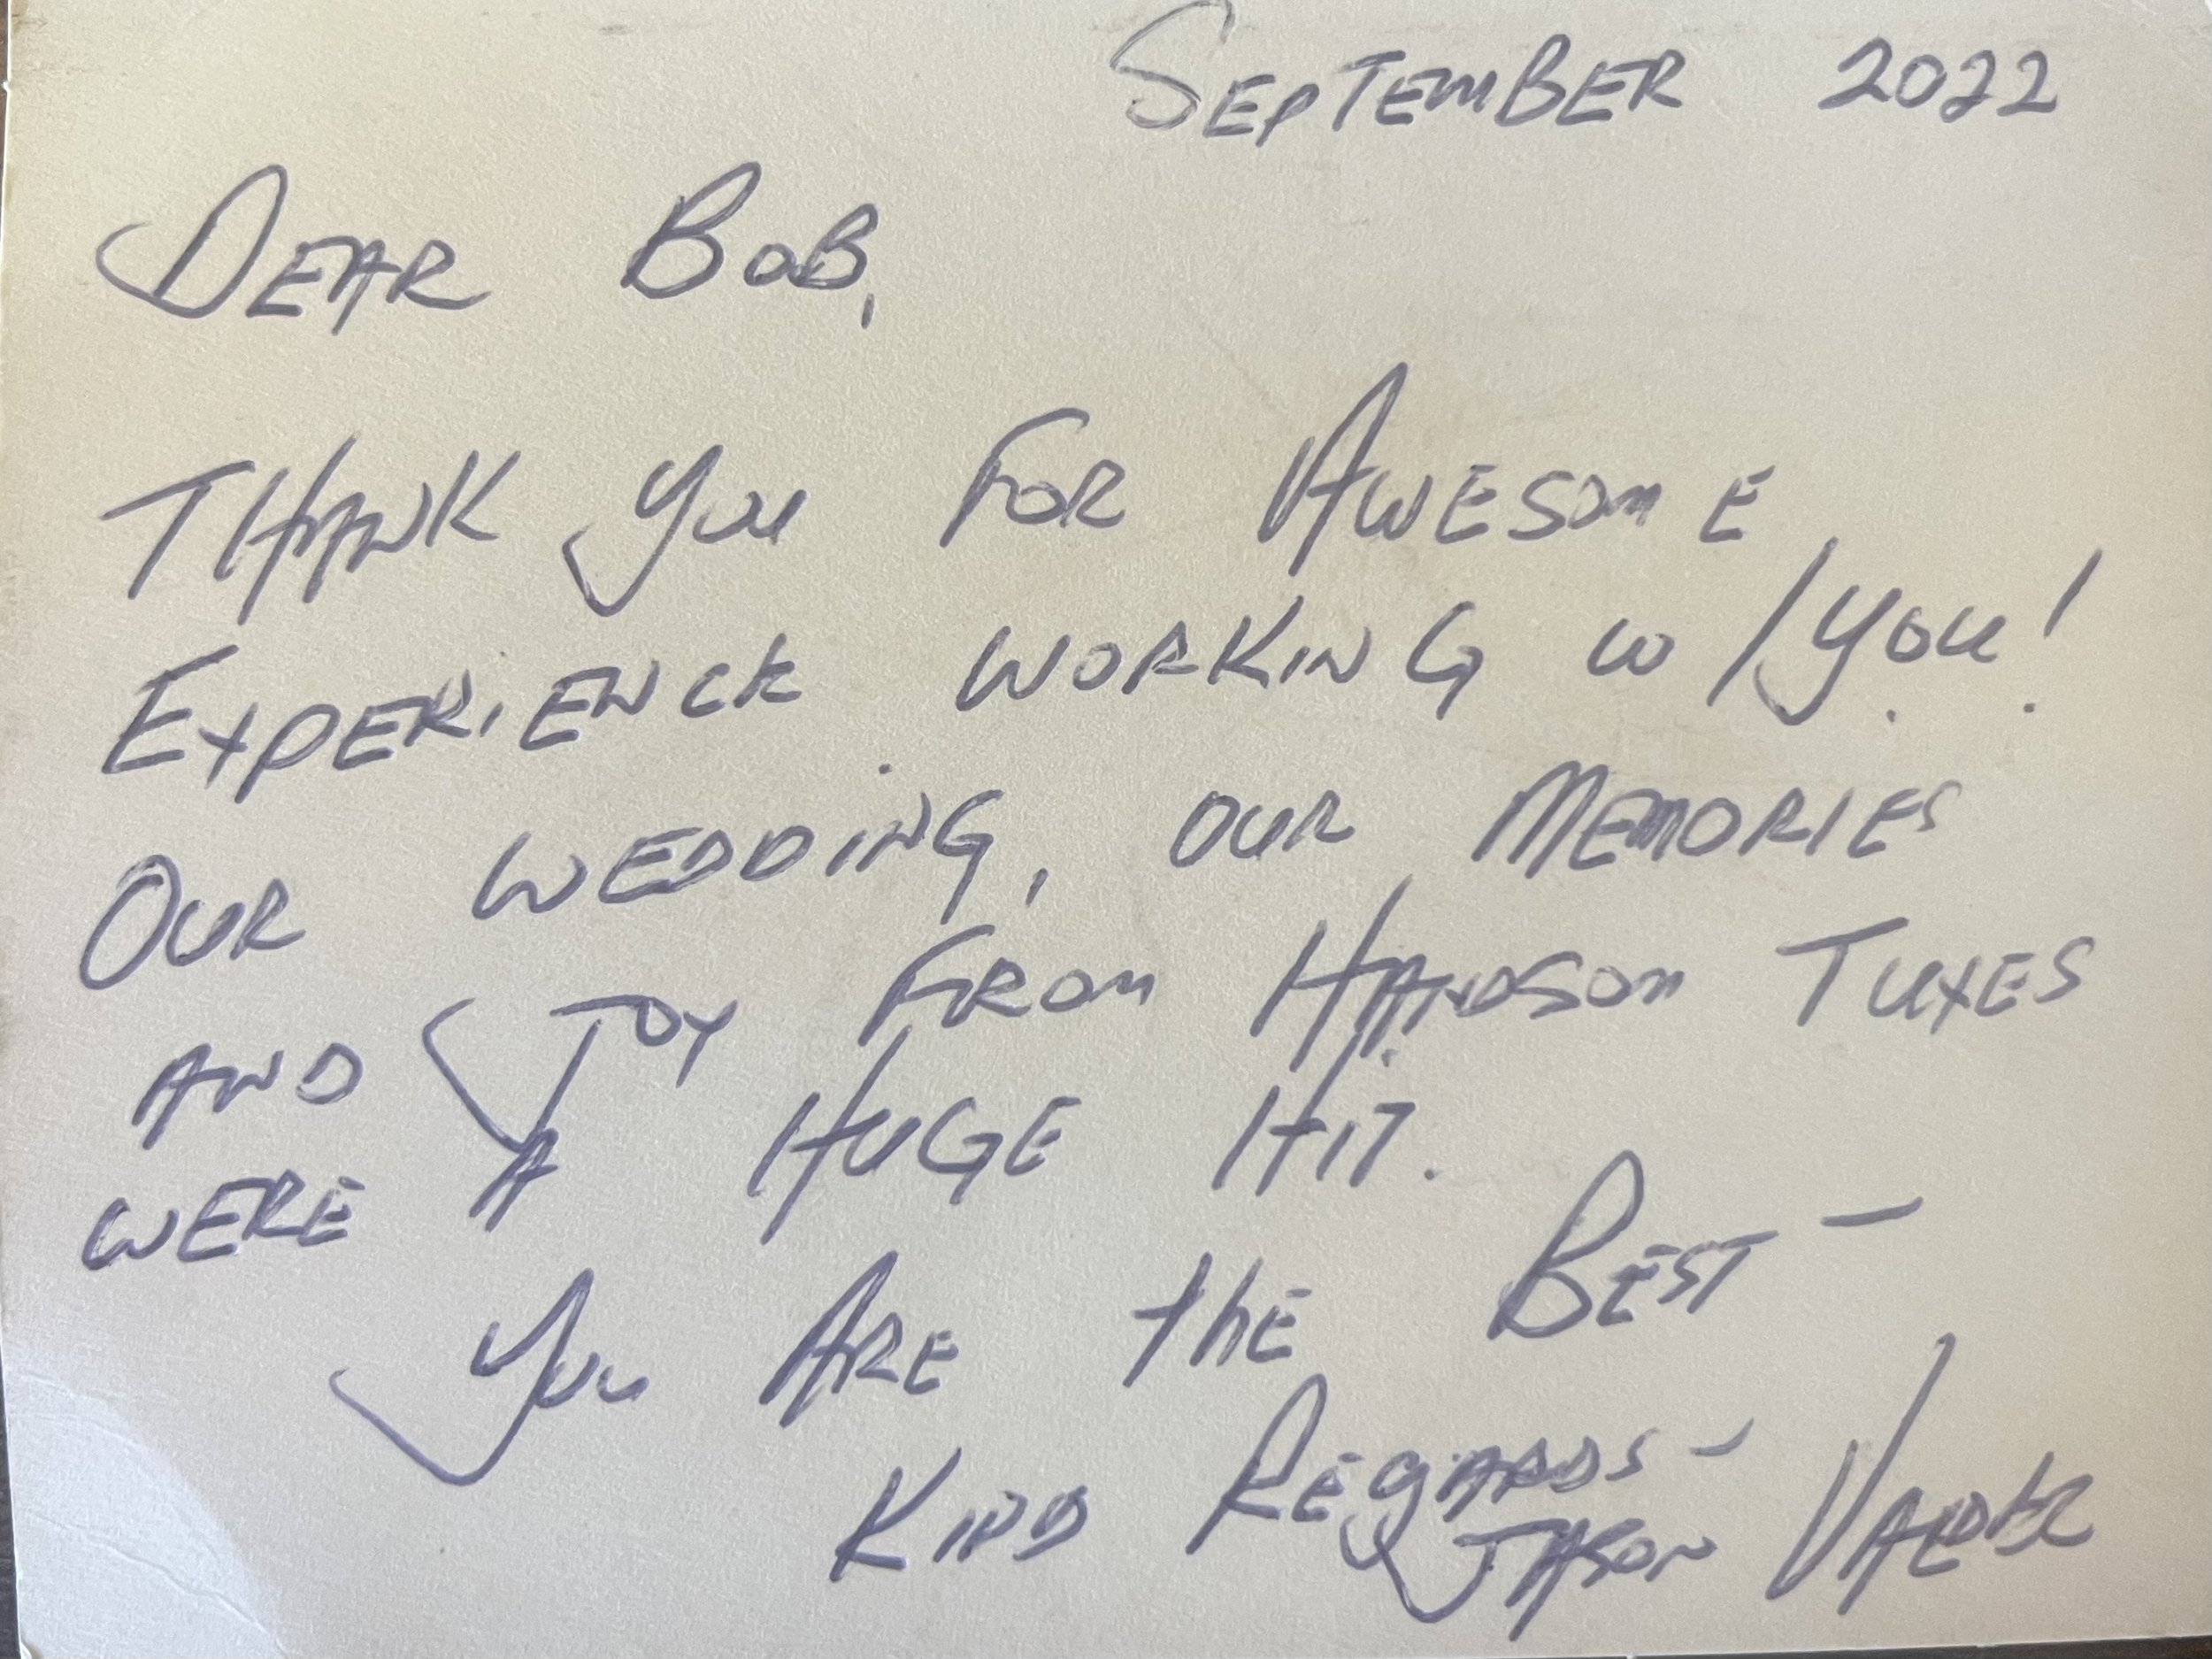 September 2022
Dear Bob,
Thank you for Awesome
Experience working w/you!
Our wedding, our Memories
and Joy from Handsom Tuxes
were a Huge Hit.
You Are the Best -
Kind Regards -
Jason